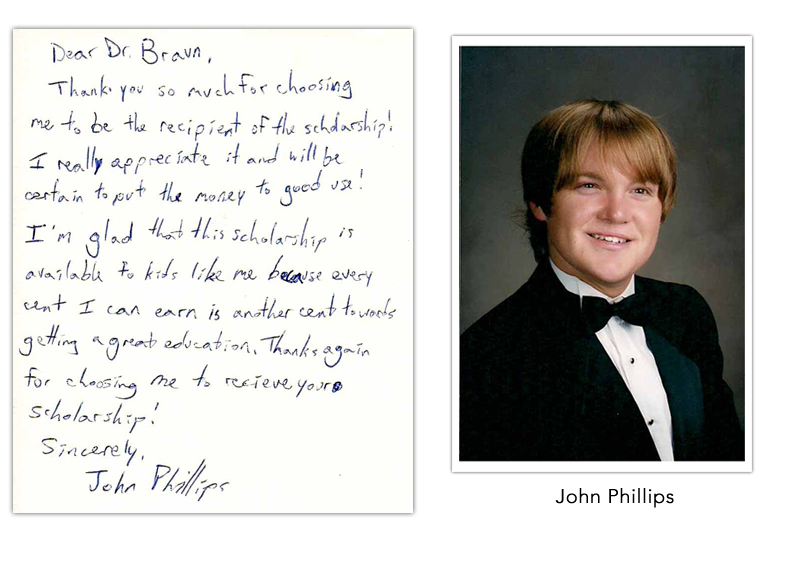 Dear Dr. Braun,
Thank you so much for choosing
me to be the recipient of the scholarship!
I really appreciate it and will be
certain to put the money to good use!
I'm glad that this scholarship is
available to kids like me because every
cent I can earn is another cent towards
getting a great education. Thanks again
for choosing me to recieve your
scholarship!
Sincerely,
John Phillips
John Phillips